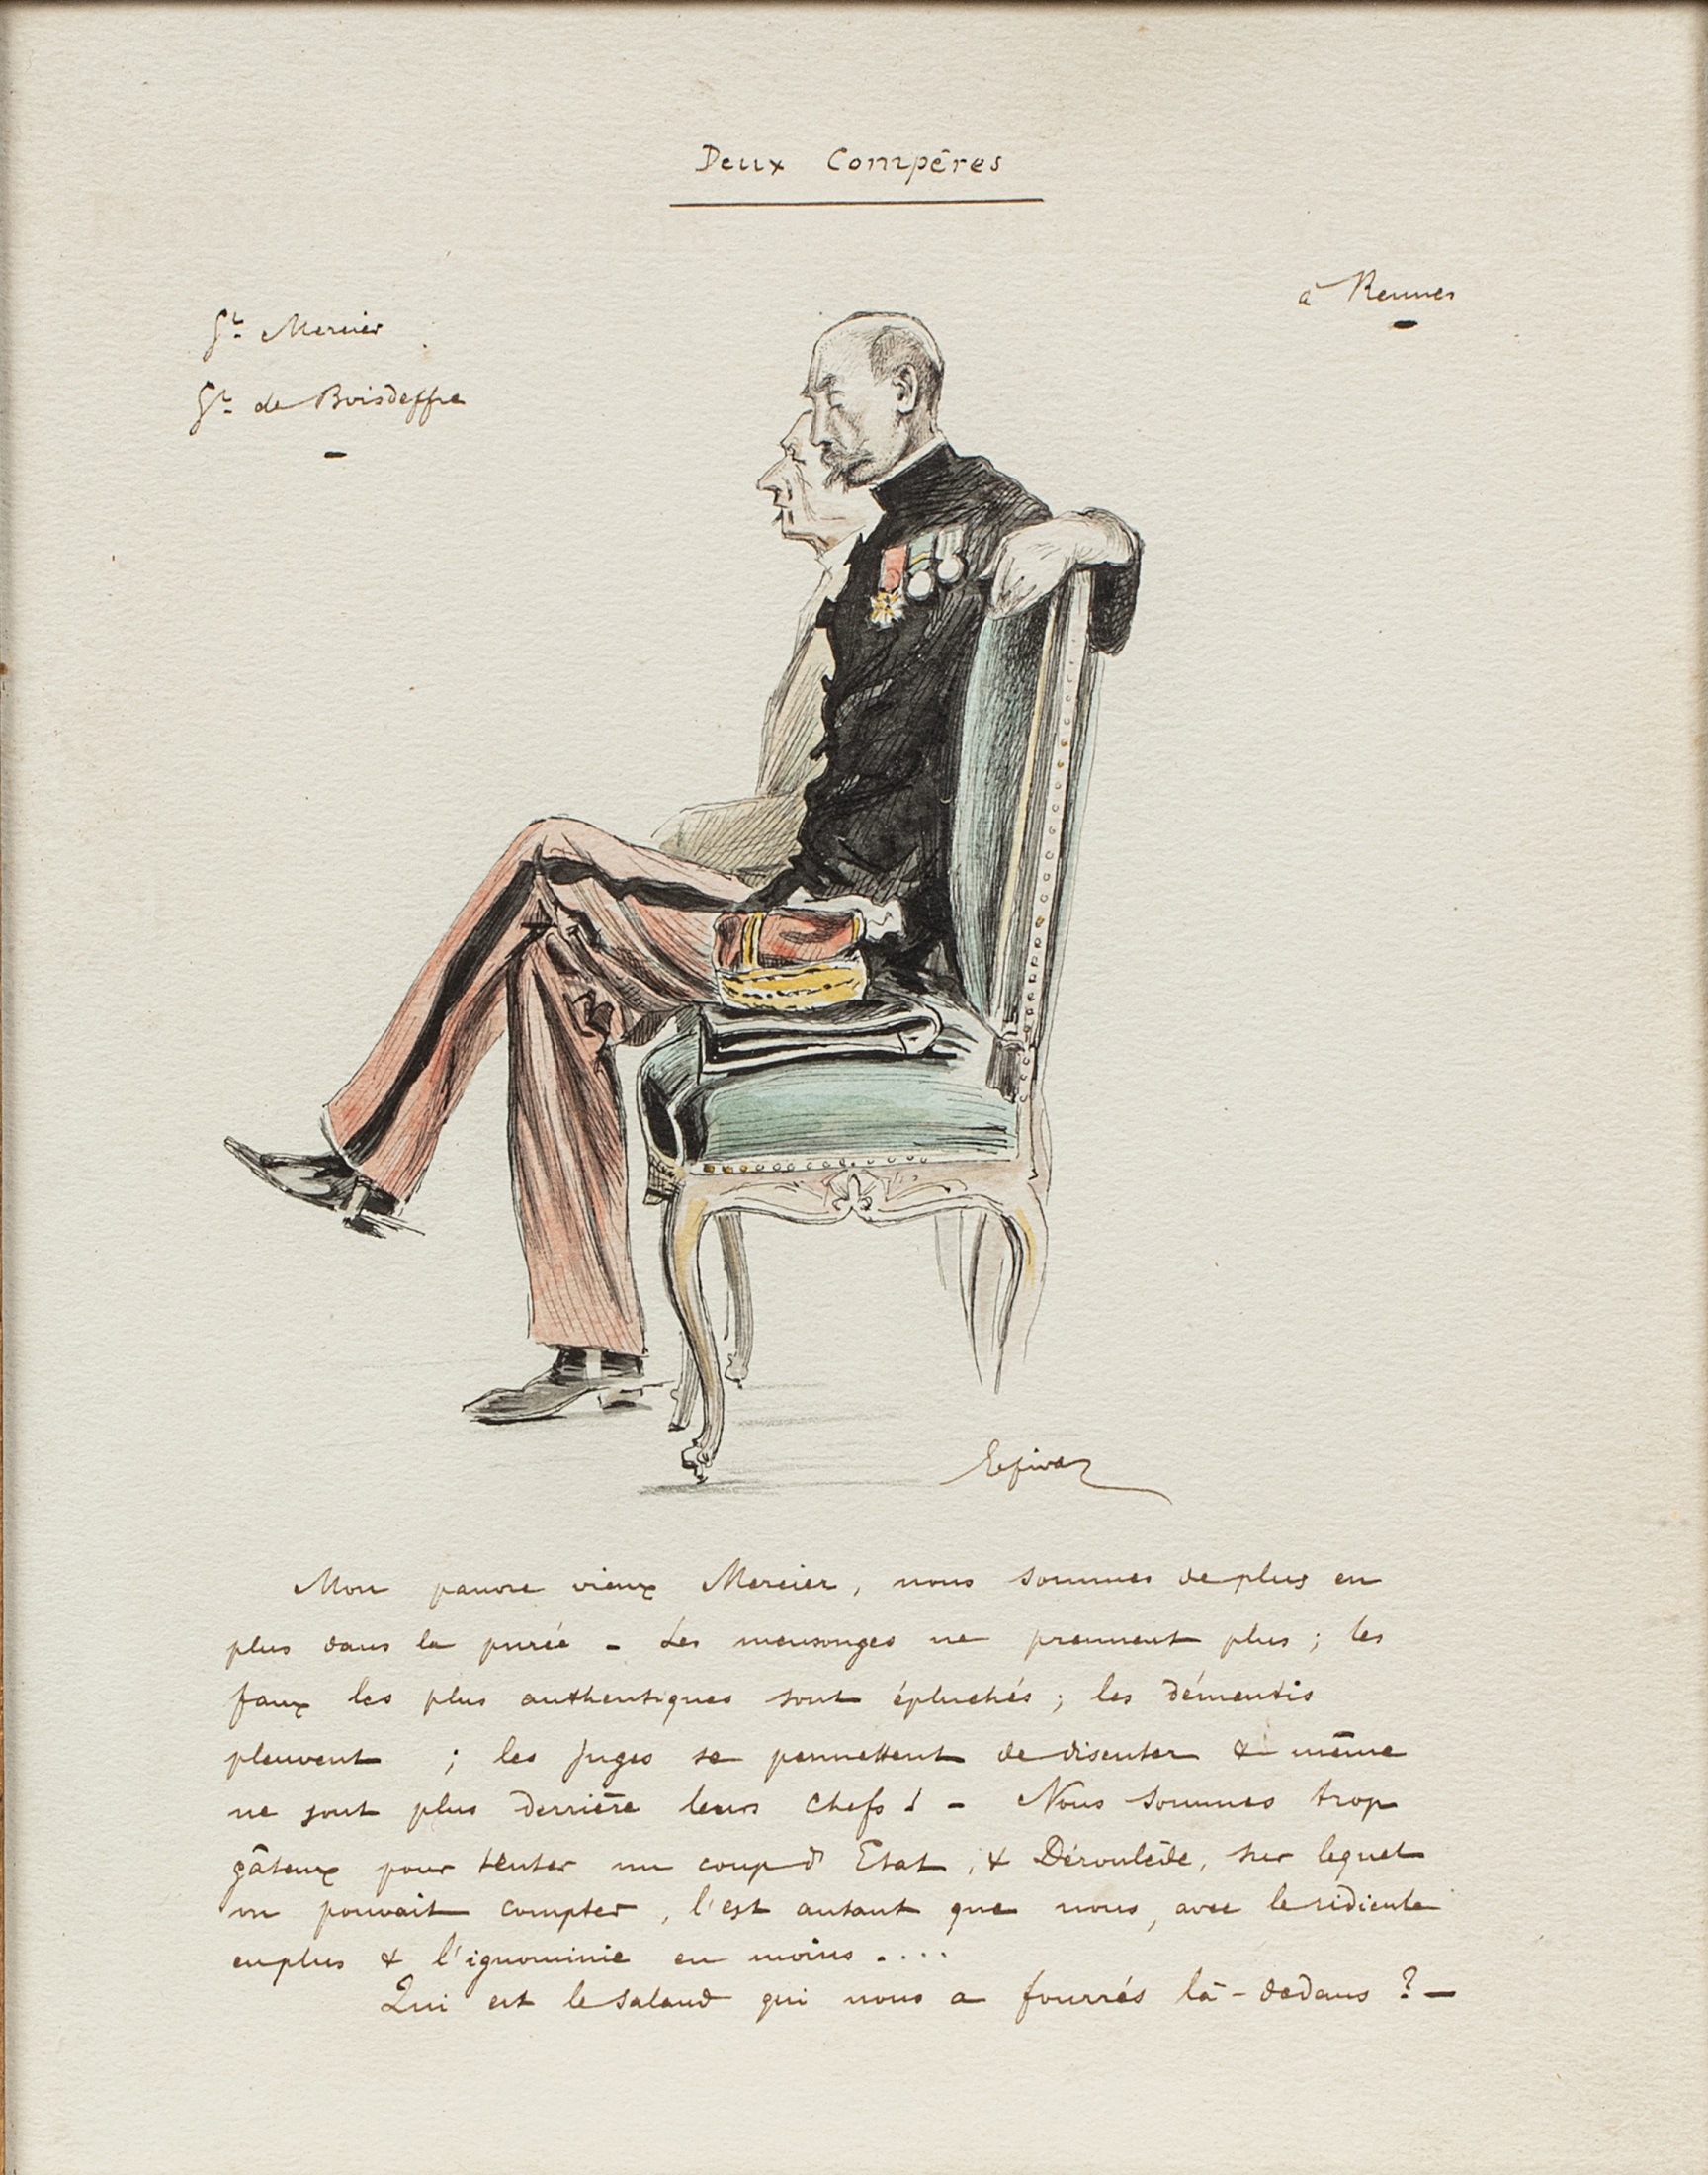 Deux Compères
à Rennes
Gl. Mercier
Gl. de Boisdeffre
Mon pauvre vieux Mercier, nous sommes de plus en
plus dans la purée - Les mensonges ne prennent plus ; les
faux les plus authentiques sont épluchés ; les démentis
pleuvent ; les juges se permettent de discuter & même
ne sont plus derrière leurs chefs ! - Nous sommes trop
gâteux pour tenter un coup d Etat, & Déroulède, sur lequel
on pouvait compter, l'est autant que nous, avec le ridicule
en plus & l'ignominie en moins ....
Qui est le salaud qui nous a fourrés là-dedans ? -